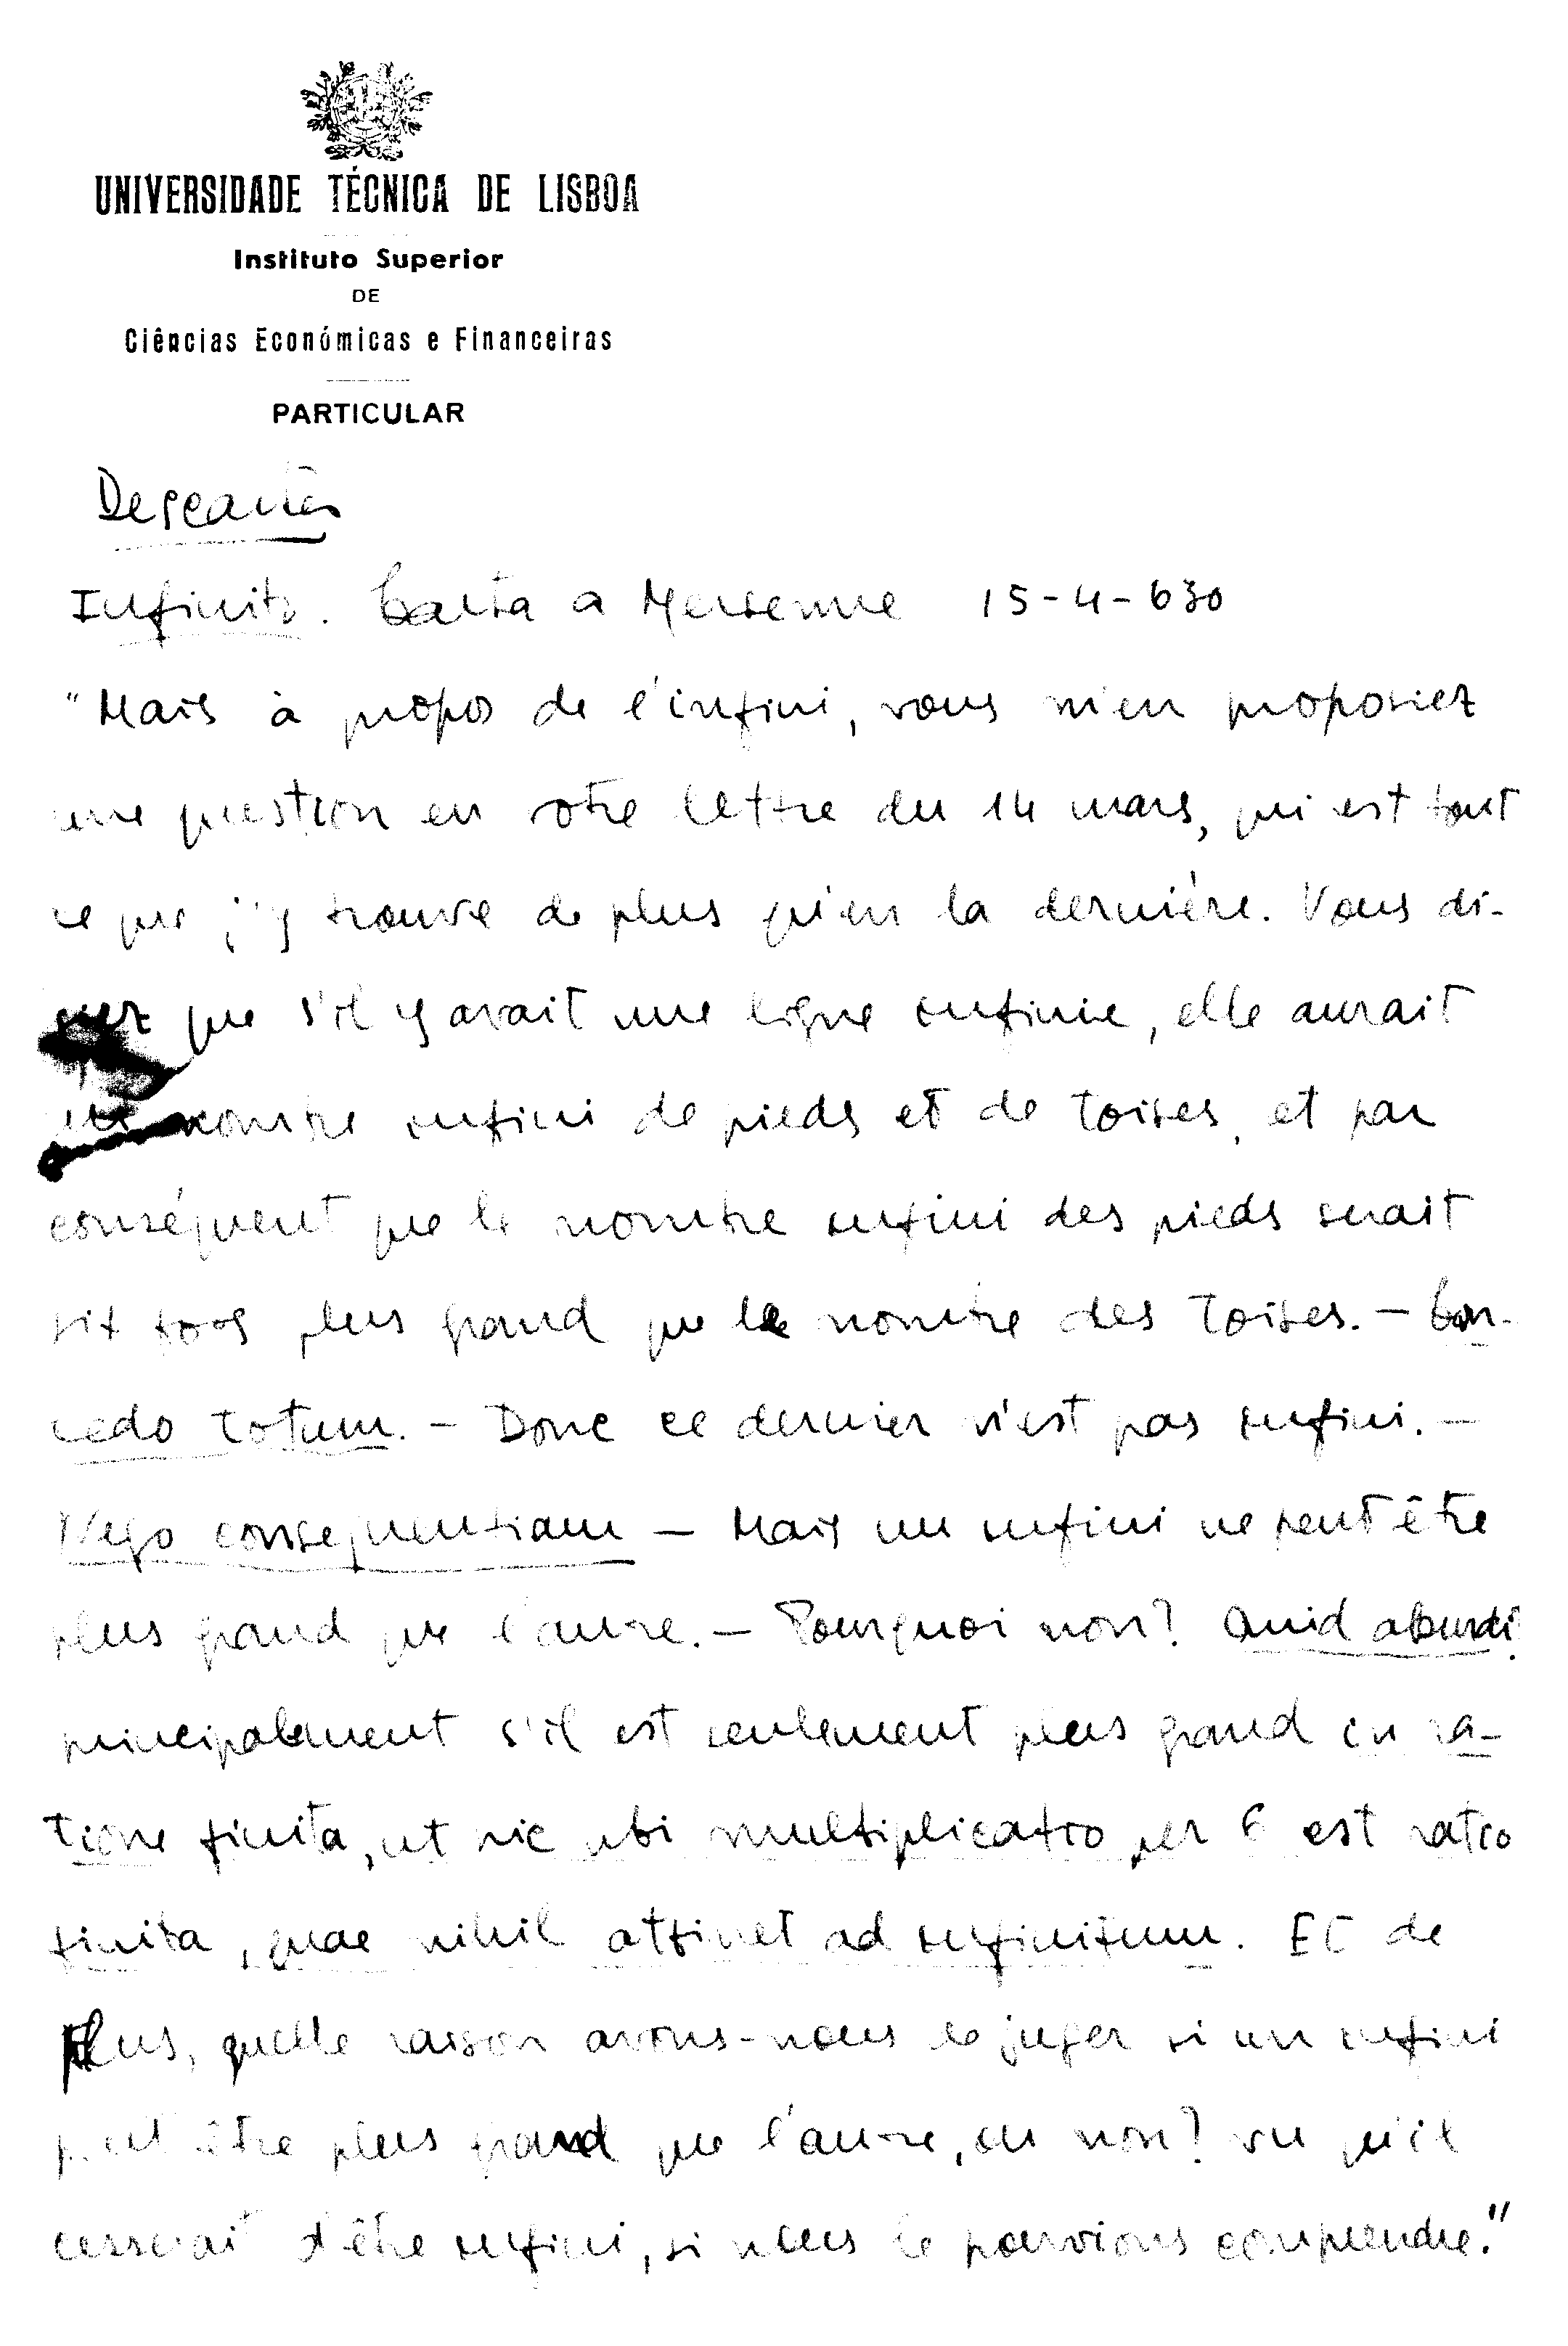 UNIVERSIDADE TÉCNICA DE LISBOA
Instituto Superior
DE
Ciências Económicas e Financeiras
PARTICULAR
Descartes
Infinito. Carta a Mersenne 15-4-630
"Mais à propos de l'infini, vous m'en proposiez
une question en votre lettre du 14 mars, qui est tout
ce que j'y trouve de plus qu'en la dernière. Vous di-
siez que s'il y avait une ligne infinie, elle aurait
un nombre infini de pieds et de toises, et par
conséquent que le nombre infini des pieds serait
six fois plus grand que le nombre des toises. - Con-
cedo totum. - Donc ce dernier n'est pas infini. -
Nego consequentiam - Mais un infini ne peut être
plus grand que l'autre. - Pourquoi non? Quid absurdi?
principalement s'il est seulement plus grand in ra-
tione finita, ut hic ubi multiplicatio per 6 est ratio
finita, quae nihil attinet ad infinitum. Et de
plus, quelle raison avons-nous de juger si un infini
peut être plus grand que l'autre, ou non? vu qu'il
cesserait d'être infini, si nous le pouvions comprendre."